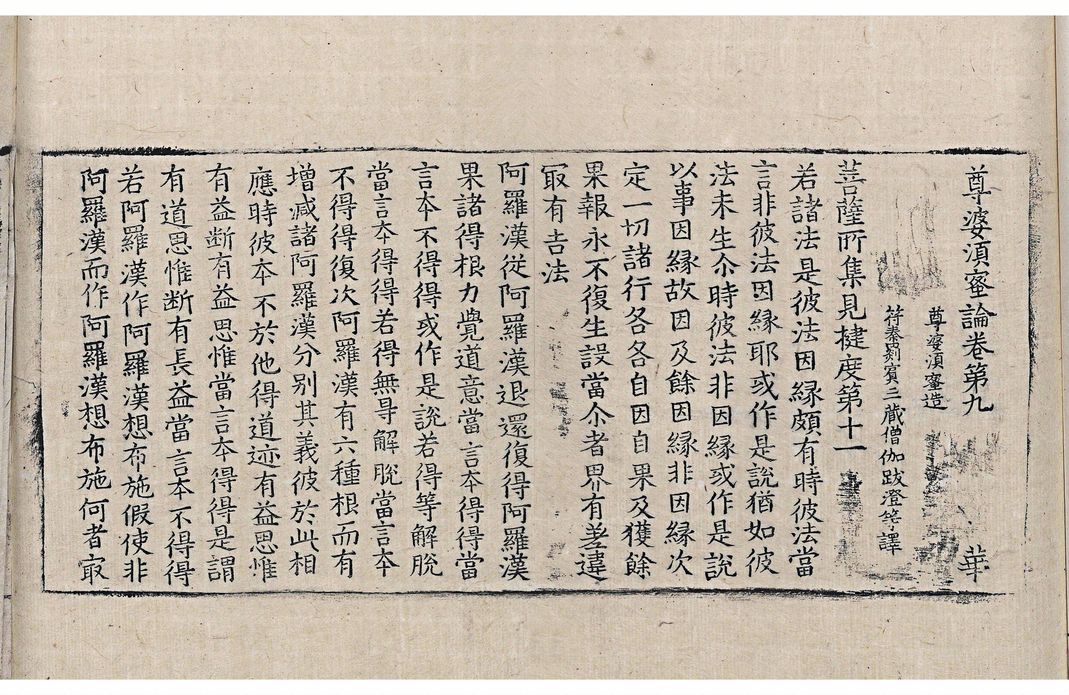 尊婆須蜜論卷第九 華
尊婆須蜜造
符秦罽賓三藏僧伽跋澄等譯
菩薩所集見揵度第十一
若諸法是彼法因縁頗有時彼法當
言非彼法因縁耶或作是説猶如彼
法未生尒時彼法非因縁或作是説
以事因縁故因及餘因縁非因縁次
定一切諸行各各自因自果及獲餘
果報永不復生設當尒者界有差違
㝡有吉法
阿羅漢從阿羅漢退還復得阿羅漢
果諸得根力覺道意當言夲得得當
言夲不得得或作是説若得等解脫
當言夲得得若得無㝵解脫當言夲
不得得復次阿羅漢有六種根而有
增减諸阿羅漢分別其義彼於此相
應時彼夲不於他得道迹有益思惟
有益断有益思惟當言夲得得是謂
有道思惟断有長益當言夲不得得
若阿羅漢作阿羅漢想布施假使非
阿羅漢而作阿羅漢想布施何者㝡